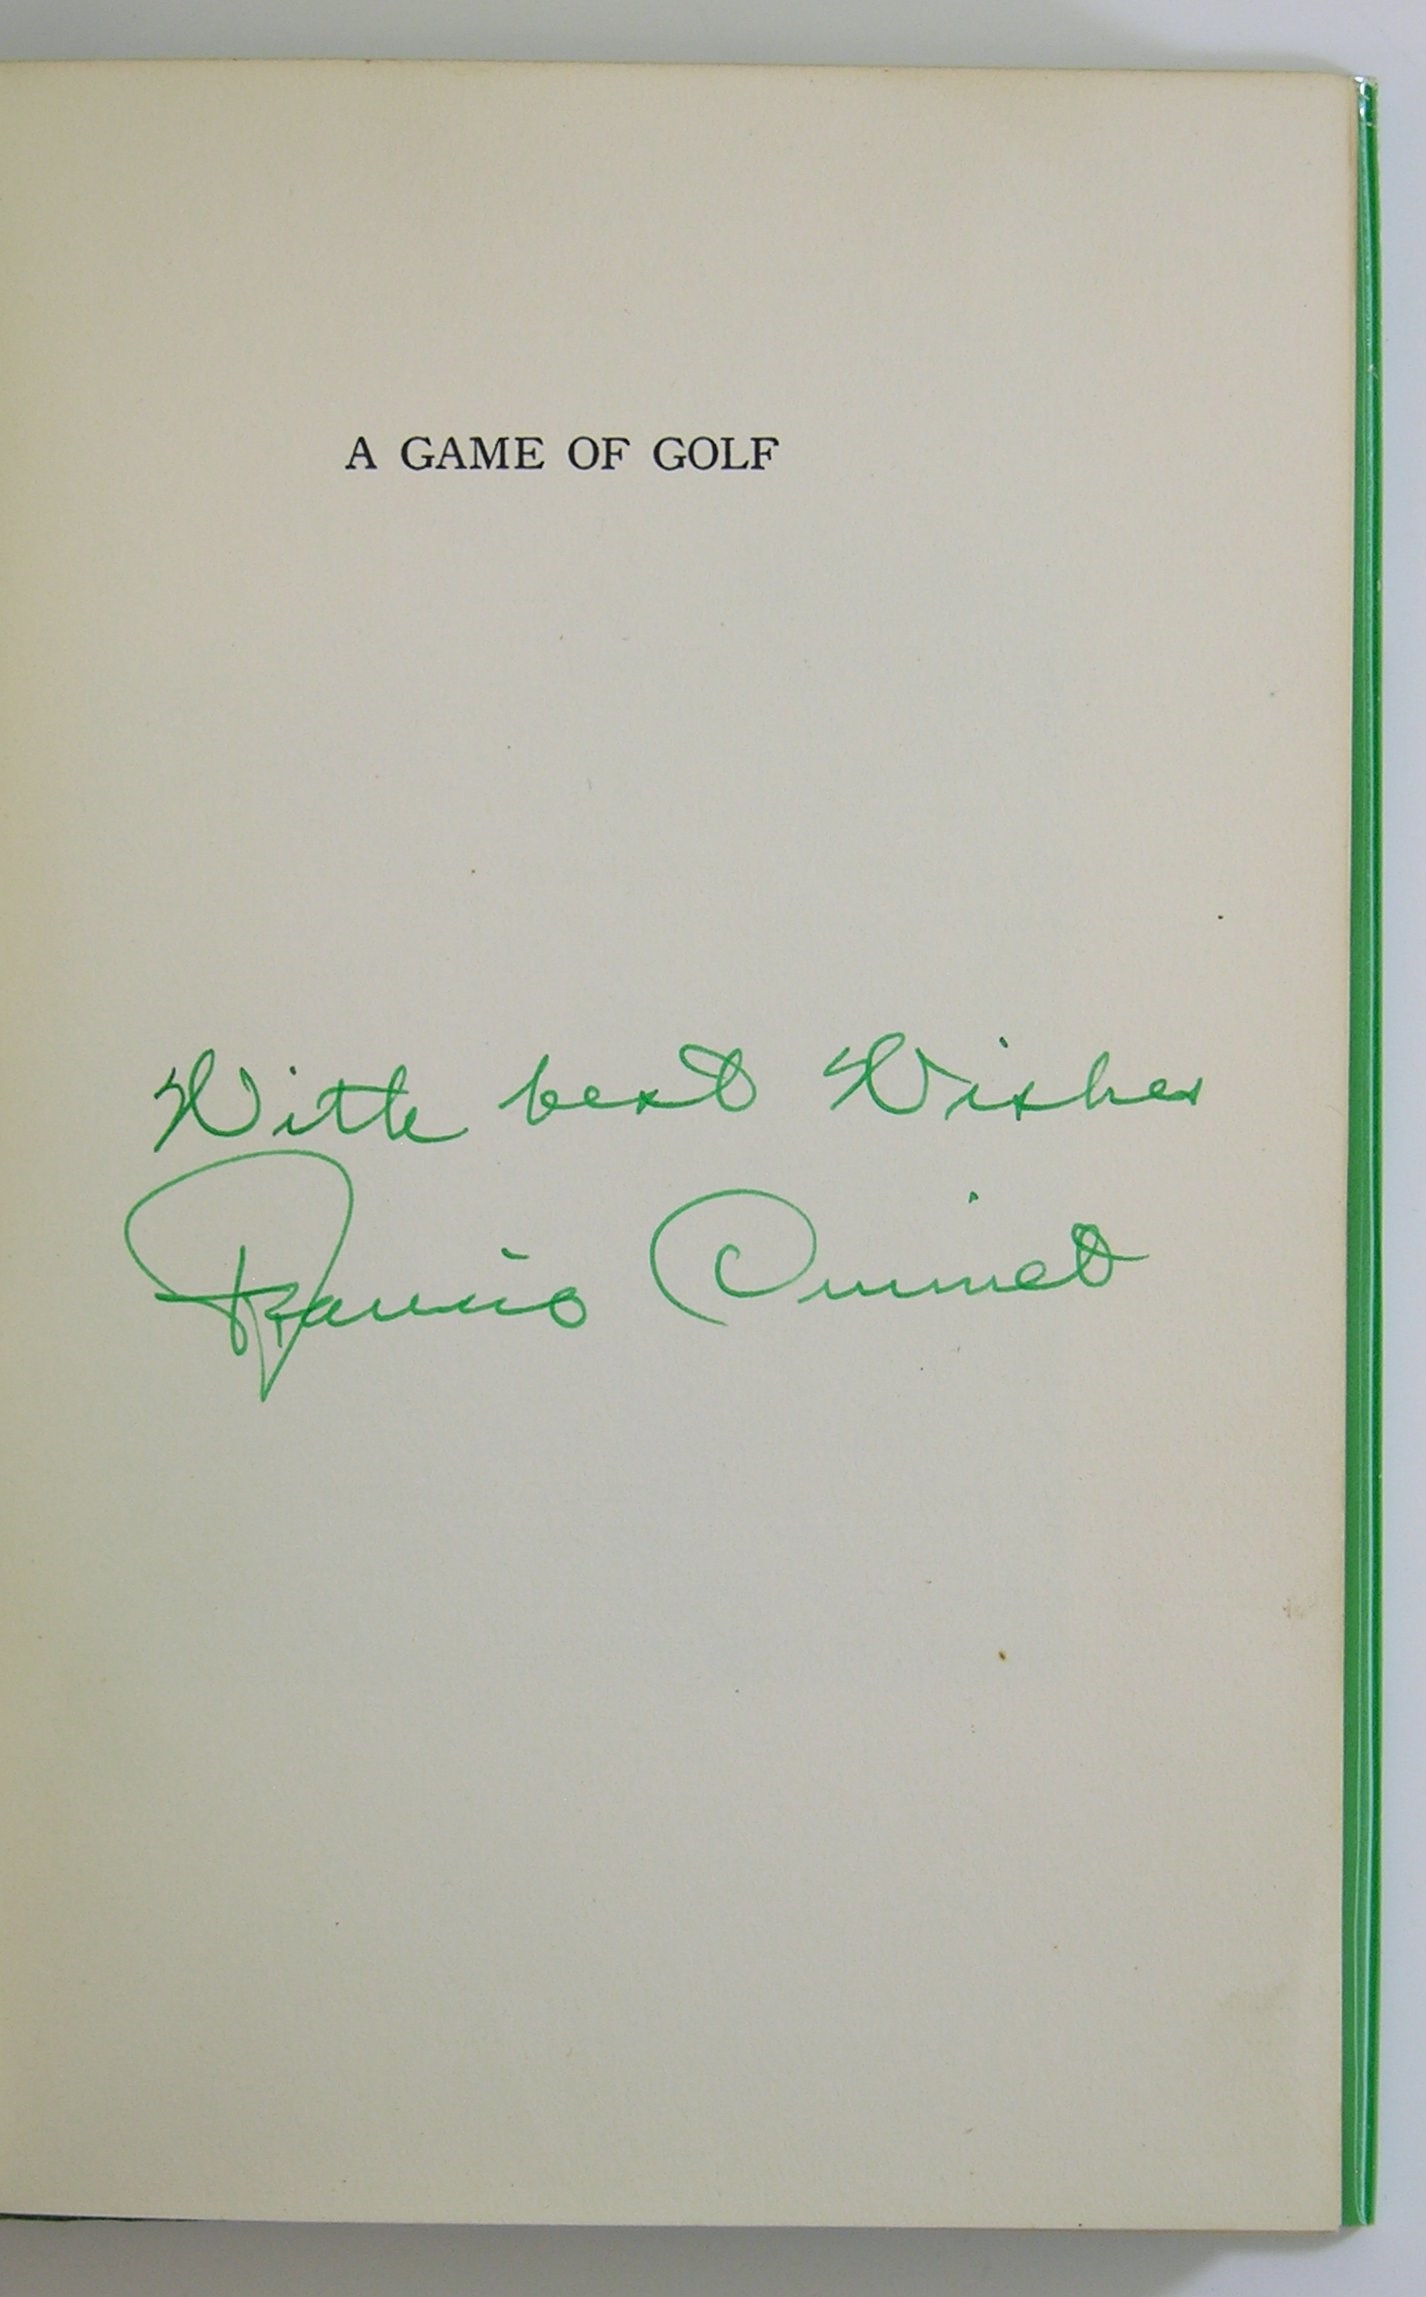 A GAME OF GOLF
With best Wishes
Francis Ouimet